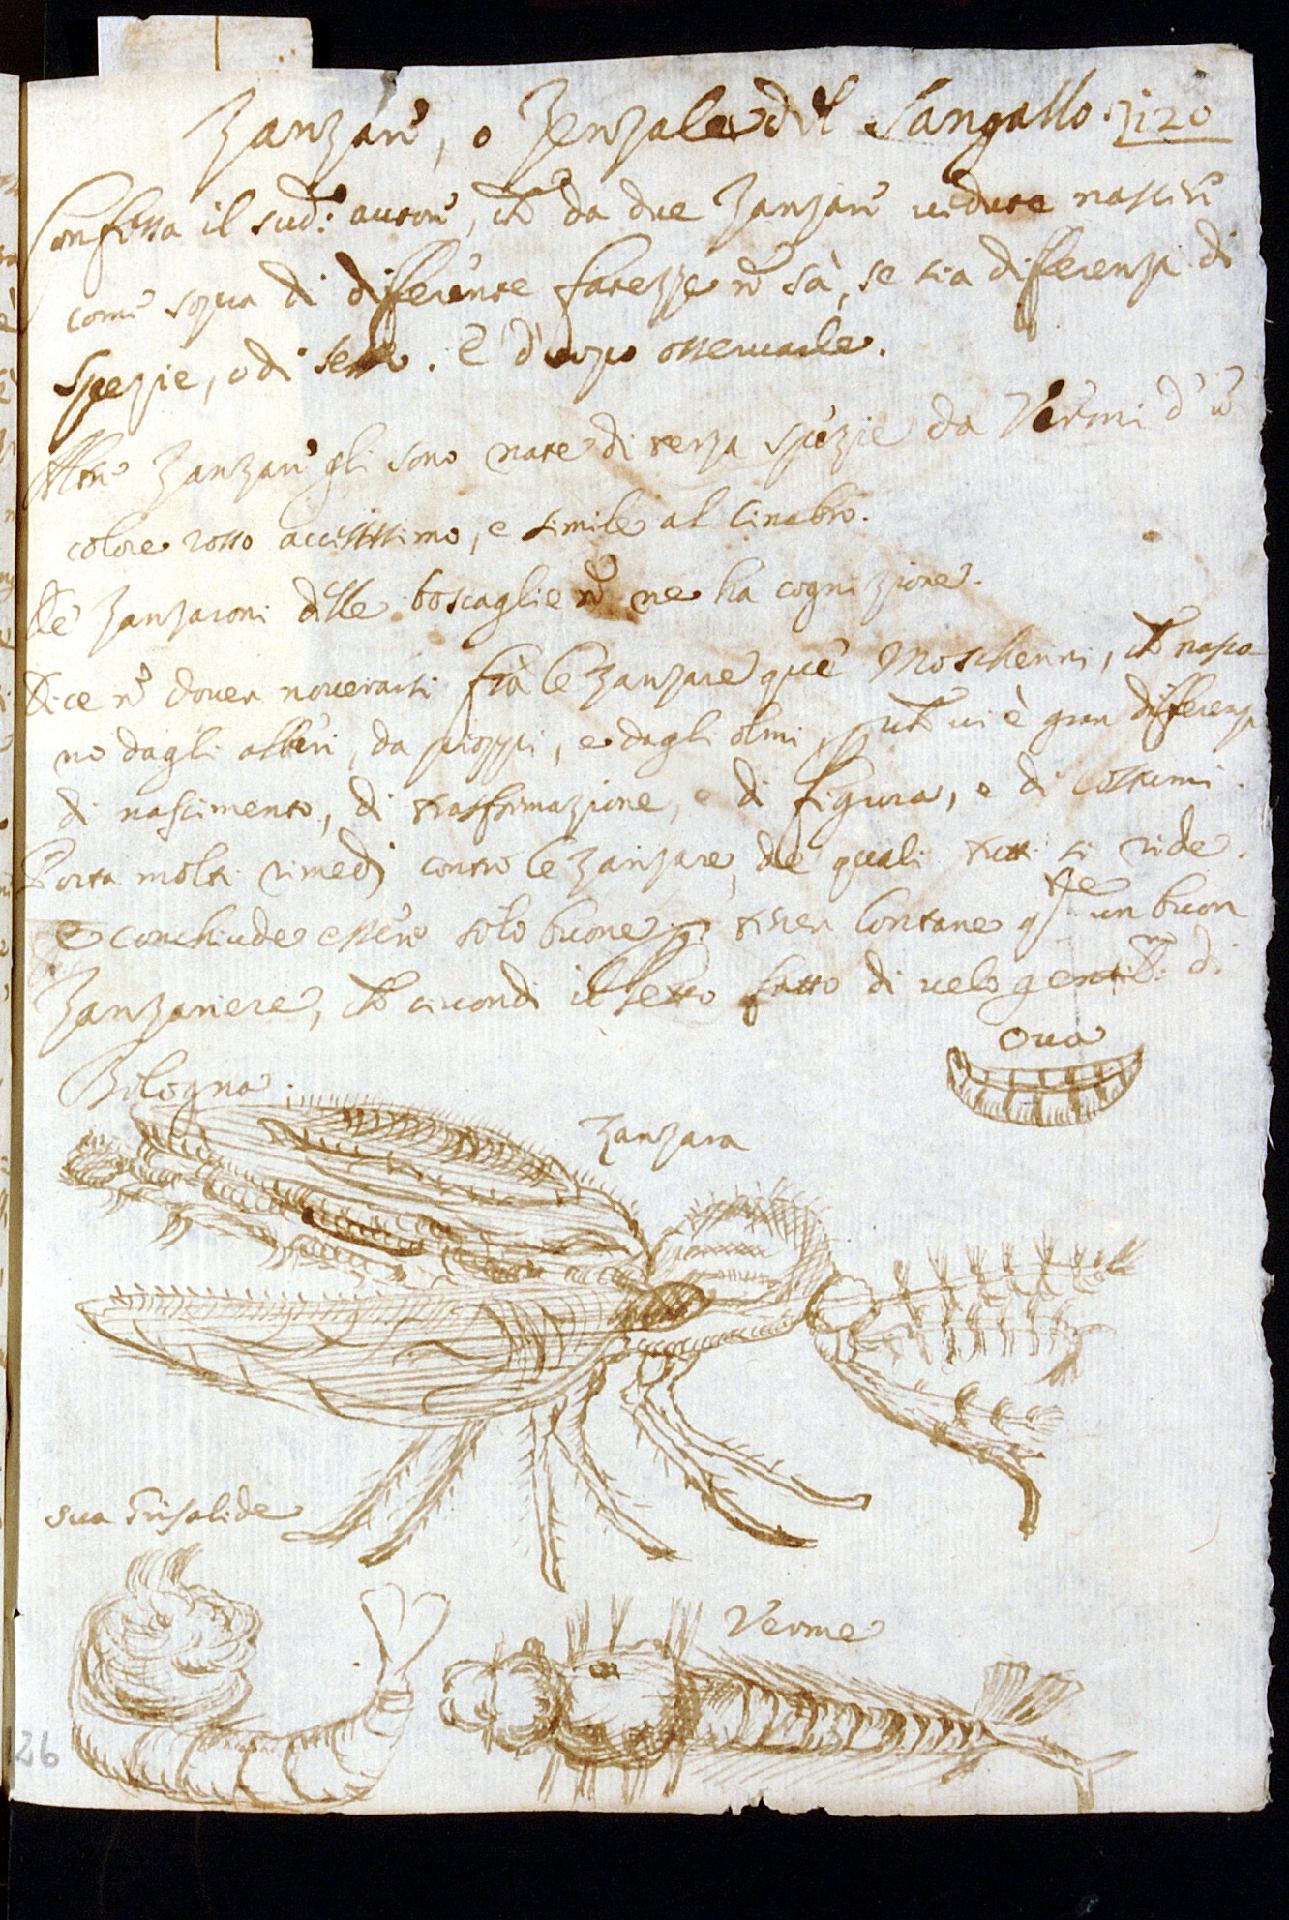 Zanzare, o Zenzale del Sangallo. 1120
Confessa il sud.º autore, che da due Zanzare vedute nascere
come sopra di differente fatezze nõ sà, se sia differenza di
spezie, o di sesso. È d'uopo osservarle.
Altre Zanzare gli sono nate di terza spezie da Vermi d'ũ
colore rosso accesissimo, e simile al cinabro.
De' Zanzaroni delle boscaglie nõ ne ha cognizione.
Dice nõ dover noverarsi frà le zanzare que' Moscherini, che nasco-
no dagli alberi, da pioppi, e dagli olmi, che vi è gran differenza
di nascimento, di trasformazione, e di figura, e di costumi.
Porta molti rimedj contro le zanzare, de' quali tutti si ride.
e conchiude essere solo buone p tener lontane un buon
Zanzariere, che circondi il letto fatto di velo di
Bologna.
Ova
Zanzara
sua Crisalide
Verme
26